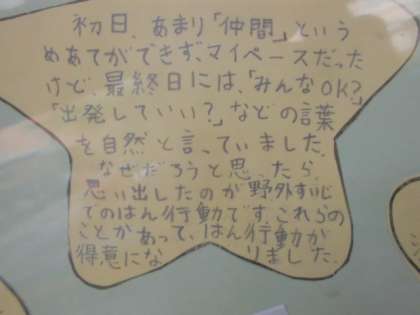 初日、あまり「仲間」という
めあてができず、マイペースだった
けど、最終日には、「みんなOK?」
「出発していい?」などの言葉
を自然と言っていました。
なぜだろうと思ったら、
思い出したのが野外すいじ
でのはん行動です。これらの
ことがあって、はん行動が
得意になりました。